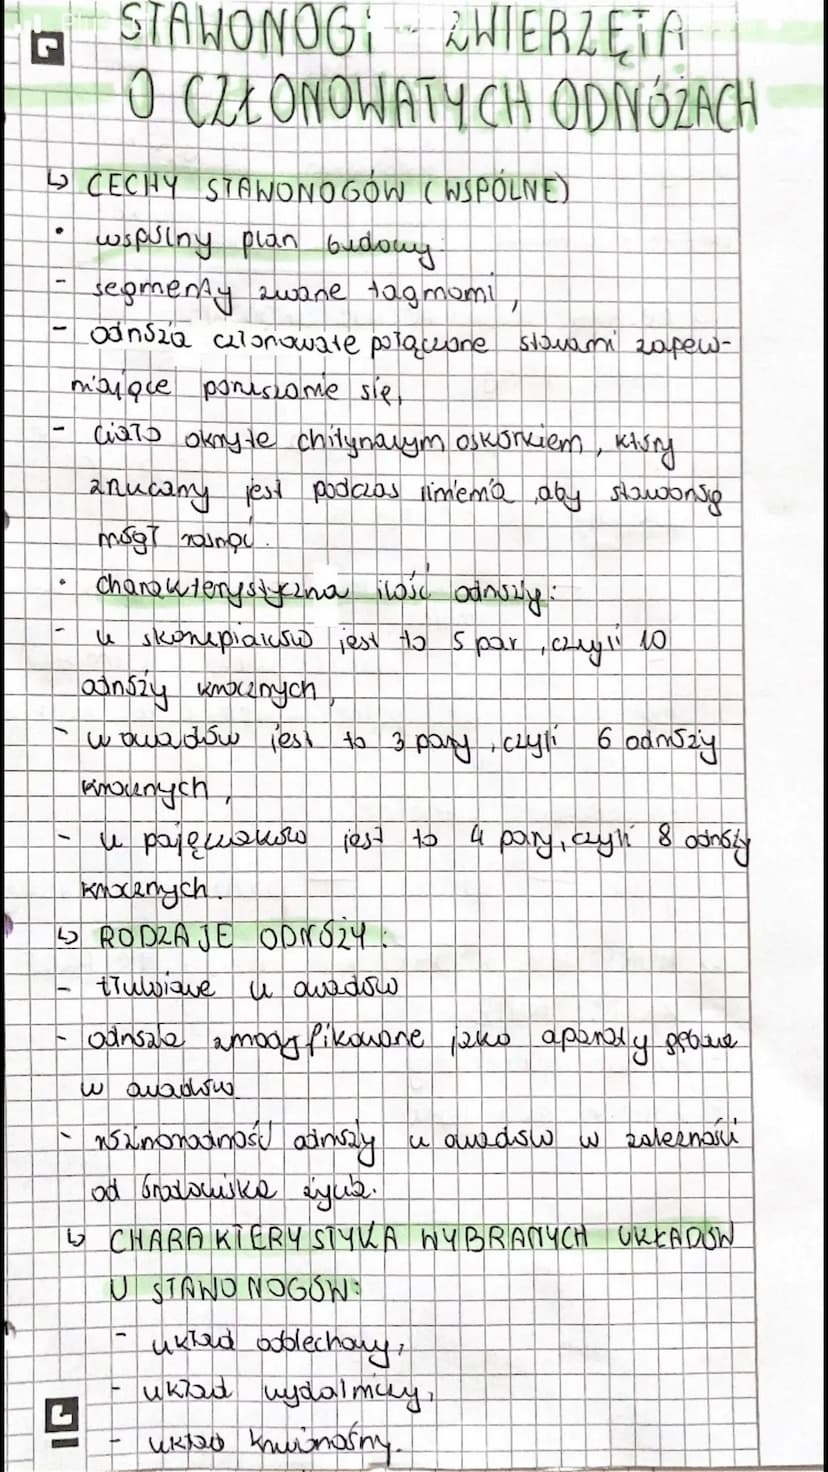 STAWONOGI - ZWIERZĘTA
O CZŁONOWATYCH ODNÓŻACH
↳ CECHY STAWONOGÓW (WSPÓLNE)
• wspólny plan budowy:
- segmenty zwane tagmami,
- odnóża członowate połączone stawami zapew-
niające poruszanie się,
- ciało okryte chitynowym oskórkiem, który
zrzucany jest podczas linienia, aby stawonóg
mógł rosnąć.
• charakterystyczna ilość odnóży:
- u skorupiaków jest to 5 par, czyli 10
odnóży krocznych,
- u owadów jest to 3 pary, czyli 6 odnóży
krocznych,
- u pajęczaków jest to 4 pary, czyli 8 odnóży
krocznych.
↳ RODZAJE ODNÓŻY:
- tłuwiowe u owadów
- odnóża zmodyfikowane jako aparaty gębowe
u owadów
- różnorodność odnóży u owadów w zależności
od środowiska życia.
↳ CHARAKTERYSTYKA WYBRANYCH UKŁADÓW
U STAWONOGÓW:
- układ oddechowy,
- układ wydalniczy,
- układ krwionośny.